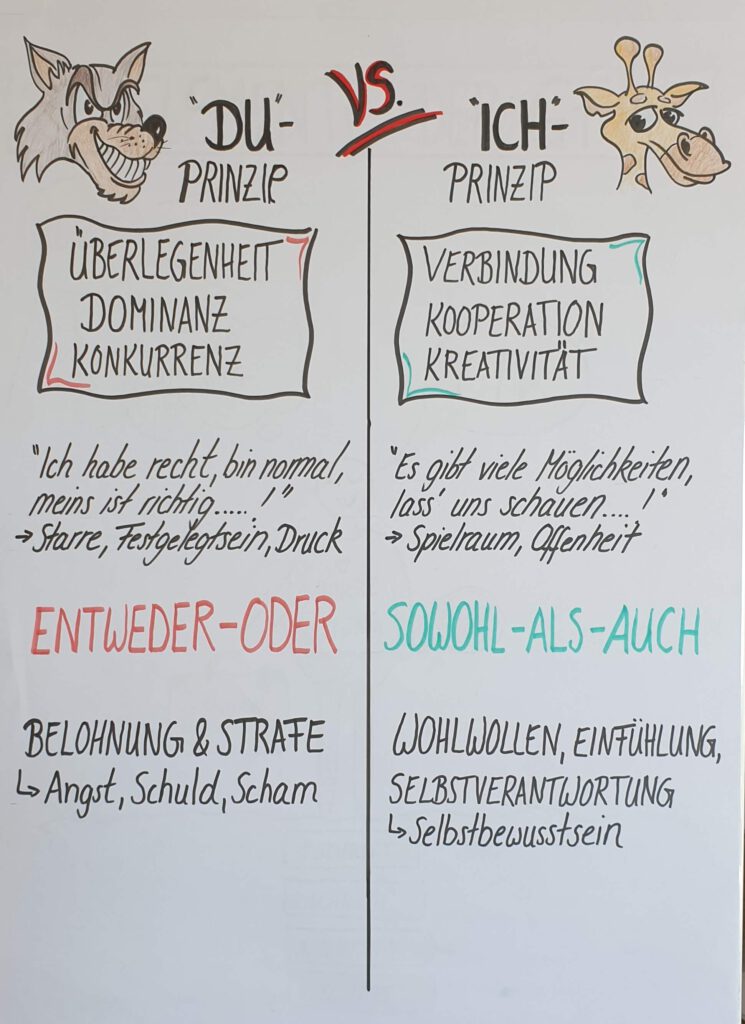 VS.
"DU"-
PRINZIP
ÜBERLEGENHEIT
DOMINANZ
KONKURRENZ
"Ich habe recht, bin normal,
meins ist richtig.....!"
→ Starre, Festgelegtsein, Druck
ENTWEDER-ODER
BELOHNUNG & STRAFE
↳ Angst, Schuld, Scham
"ICH"-
PRINZIP
VERBINDUNG
KOOPERATION
KREATIVITÄT
"Es gibt viele Möglichkeiten,
lass' uns schauen....!"
→ Spielraum, Offenheit
SOWOHL-ALS-AUCH
WOHLWOLLEN, EINFÜHLUNG,
SELBSTVERANTWORTUNG
↳ Selbstbewusstsein